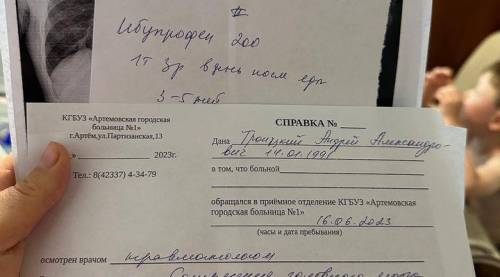 Ибупрофен 200
1т 3р в день после еды
3-5 дней
КГБУЗ «Артемовская городская
больница №1»
г.Артём,ул.Партизанская,13
» 2023г.
Тел.: 8(42337) 4-34-79
СПРАВКА №
Дана Троицкий Андрей Александро-
вич 14.01.199
в том, что больной
обращался в приёмное отделение КГБУЗ «Артемовская
городская больница №1»
16.06.2023
(часы и дата пребывания)
осмотрен врачом травматологом
Сотрясение головного мозга